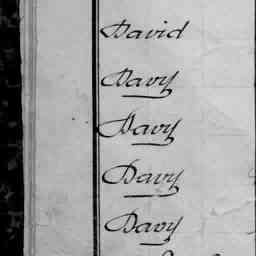 David
Davy
Davy
Davy
Davy